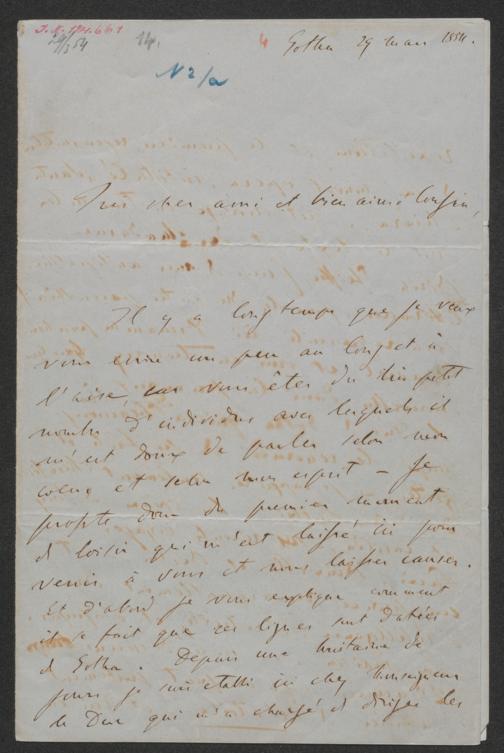 29/3 54
14.
4
N 2/a
Gotha 29 mars 1854.
Très cher ami et bien aimé Cousin,
Il y a longtemps que je veux
vous écrire un peu au long et à
l'aise, car vous êtes du très petit
nombre d'individus avec lesquels il
m'est doux de parler selon mon
coeur et selon mon esprit – Je
profite donc du premier moment
de loisir qui m'est laissé ici pour
venir à vous et nous laisser causer.
Et d'abord je vous explique comment
il se fait que ces lignes sont datées
de Gotha. Depuis une huitaine de
jours je suis établi ici chez Monseigneur
le Duc qui m'a chargé de diriger les